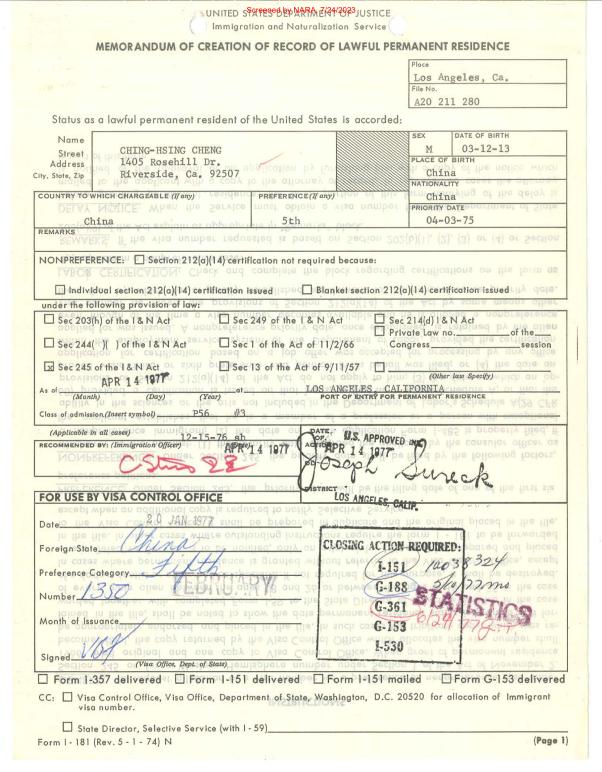 Screened by NARA, 7/24/2023
UNITED STATES DEPARTMENT OF JUSTICE
Immigration and Naturalization Service
MEMORANDUM OF CREATION OF RECORD OF LAWFUL PERMANENT RESIDENCE
Place
Los Angeles, Ca.
File No.
A20 211 280
Status as a lawful permanent resident of the United States is accorded:
Name
Street
Address
City, State, Zip
CHING-HSING CHENG
1405 Rosehill Dr.
Riverside, Ca. 92507
SEX
M
DATE OF BIRTH
03-12-13
PLACE OF BIRTH
China
NATIONALITY
China
COUNTRY TO WHICH CHARGEABLE (If any)
China
PREFERENCE (If any)
5th
PRIORITY DATE
04-03-75
REMARKS
NONPREFERENCE: ☐ Section 212(a)(14) certification not required because:
☐ Individual section 212(a)(14) certification issued ☐ Blanket section 212(a)(14) certification issued
under the following provision of law:
☐ Sec 203(h) of the I & N Act ☐ Sec 249 of the I & N Act ☐ Sec 214(d) I & N Act
☐ Private Law no. of the
☐ Sec 244( )( ) of the I & N Act ☐ Sec 1 of the Act of 11/2/66 Congress session
☒ Sec 245 of the I & N Act ☐ Sec 13 of the Act of 9/11/57 ☐
(Other law Specify)
As of APR 14 1977 at LOS ANGELES, CALIFORNIA
(Month) (Day) (Year) PORT OF ENTRY FOR PERMANENT RESIDENCE
Class of admission (Insert symbol) P56 #3
(Applicable in all cases) 12-15-76 sh
RECOMMENDED BY: (Immigration Officer) (Date) APR 14 1977
DATE OF ACTION APR 14 1977
U.S. APPROVED INS
DD
Joseph Sureck
DISTRICT LOS ANGELES, CALIF.
FOR USE BY VISA CONTROL OFFICE
Date 20 JAN 1977
Foreign State China
Preference Category Fifth
Number 1350
FEBRUARY
Month of Issuance
Signed
(Visa Office, Dept. of State)
CLOSING ACTION REQUIRED:
I-151
G-188
G-361
G-153
I-530
STATISTICS
☐ Form I-357 delivered ☐ Form I-151 delivered ☐ Form I-151 mailed ☐ Form G-153 delivered
CC: ☐ Visa Control Office, Visa Office, Department of State, Washington, D.C. 20520 for allocation of Immigrant
visa number.
☐ State Director, Selective Service (with I - 59)
Form I - 181 (Rev. 5 - 1 - 74) N (Page 1)